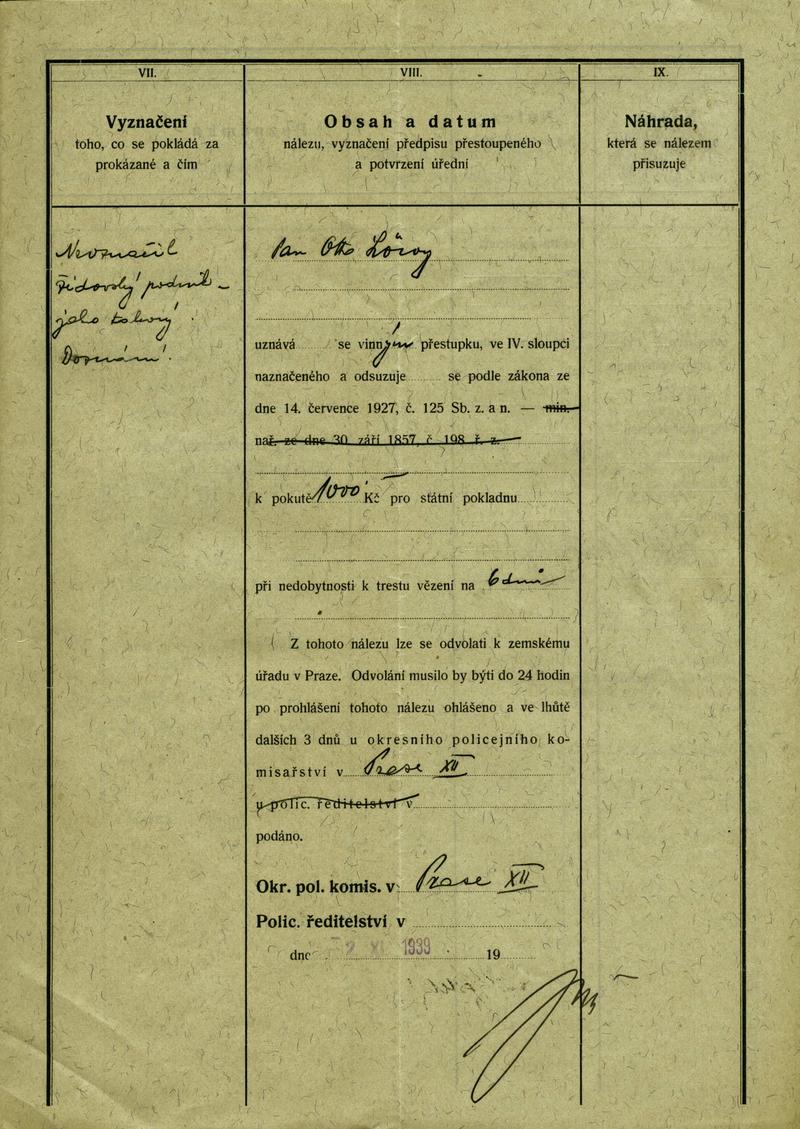 VII.
Vyznačení
toho, co se pokládá za
prokázané a čím
VIII.
Obsah a datum
nálezu, vyznačení předpisu přestoupeného
a potvrzení úřední
IX.
Náhrada,
která se nálezem
přisuzuje
jako
pan Otto
uznává se vinným přestupku, ve IV. sloupci
naznačeného a odsuzuje se podle zákona ze
dne 14. července 1927, č. 125 Sb. z. a n. — min.
nař. ze dne 30. září 1857, č. 198 ř. z.
k pokutě 1000 Kč pro státní pokladnu
při nedobytnosti k trestu vězení na 6 dnů
Z tohoto nálezu lze se odvolati k zemskému
úřadu v Praze. Odvolání musilo by býti do 24 hodin
po prohlášení tohoto nálezu ohlášeno a ve lhůtě
dalších 3 dnů u okresního policejního ko-
misařství v Praze XII
u polic. ředitelství v
podáno.
Okr. pol. komis. v Praze XII
Polic. ředitelství v
dne 1939 19